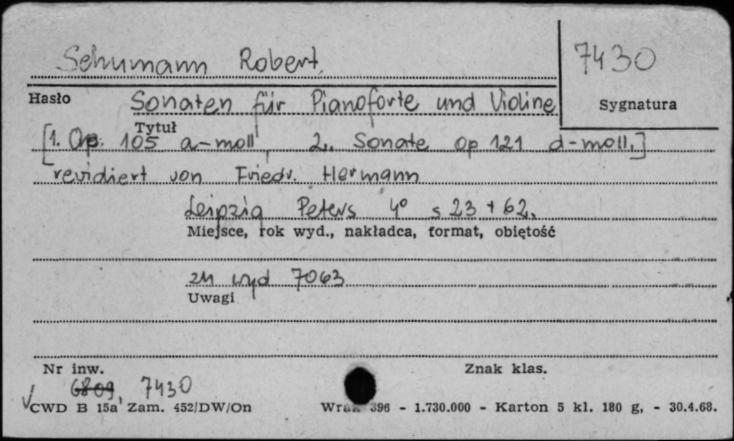 Schumann Robert. 7430
Hasło Sonaten für Pianoforte und Violine Sygnatura
Tytuł
[1. Op. 105 a-moll, 2. Sonate op 121 d-moll.]
revidiert von Friedr. Hermann
Leipzig Peters 4° s 23 + 62.
Miejsce, rok wyd., nakładca, format, objętość
wyd 7063
Uwagi
Nr inw. Znak klas.
6809 7430
CWD B 15a, Zam. 452/DW/On 396 - 1.730.000 - Karton 5 kl. 180 g, - 30.4.68.